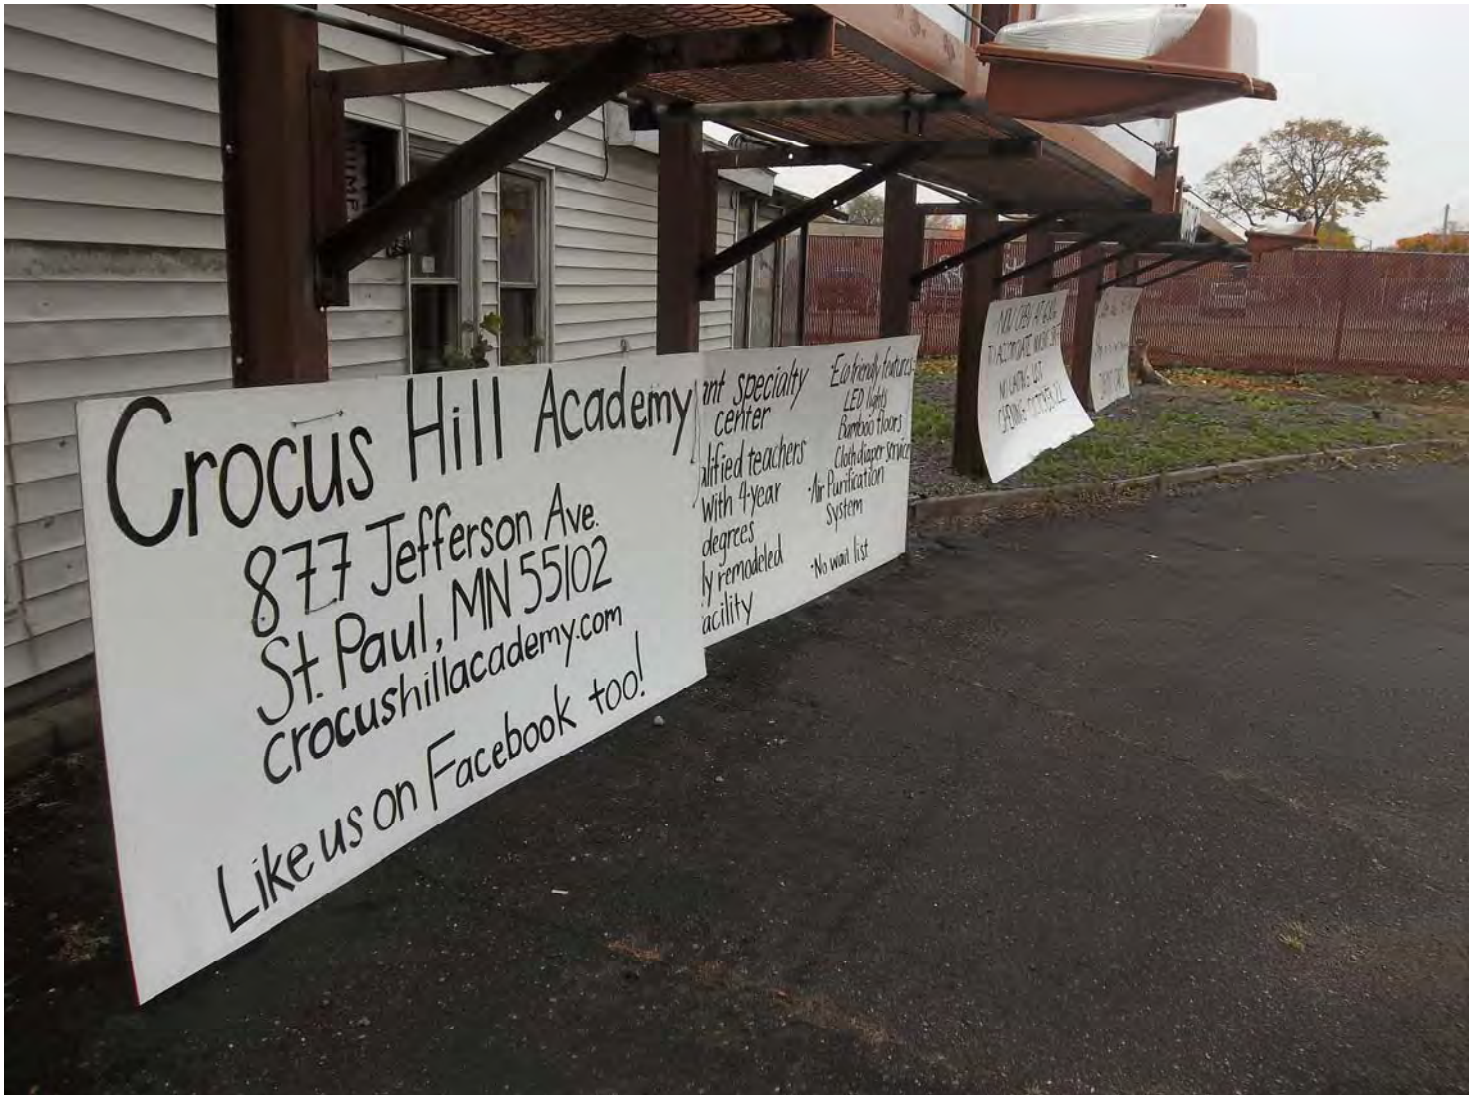 Crocus Hill Academy
877 Jefferson Ave.
St. Paul, MN 55102
crocushillacademy.com
Like us on Facebook too!
nt specialty
center
lified teachers
with 4-year
degrees
ly remodeled
acility
Eco friendly features
LED lights
Bamboo floors
Cloth diaper service
·Air Purification
system
·No wait list
NOW OPEN AT
NO WAITING LIST
OPENING OCTOBER